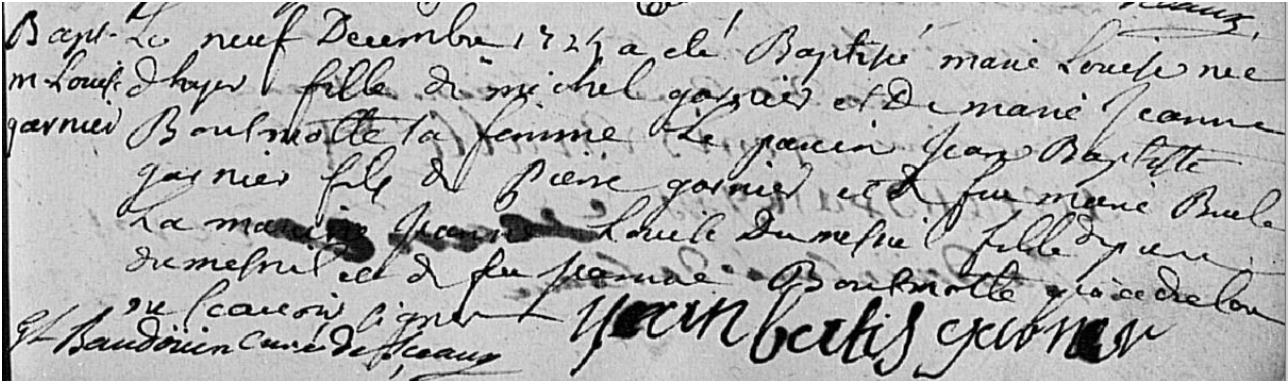 Bapt. Le neuf Decembre 1724 a eté Baptisé marie Louise neé
m Louise d'hyer fille de michel garnier et De marie Jeanne
garnier Boulmotte sa femme Le parein Jean Baptiste
garnier fils de Pierre garnier et de feu marie
La mareine Jeanne Louise Dumesnil fille de
dumesnil et de feu Jeanne Boulmotte qui a declaré
ne scavoir signer jean batis garnier
Baudouin Curé de Sceaux